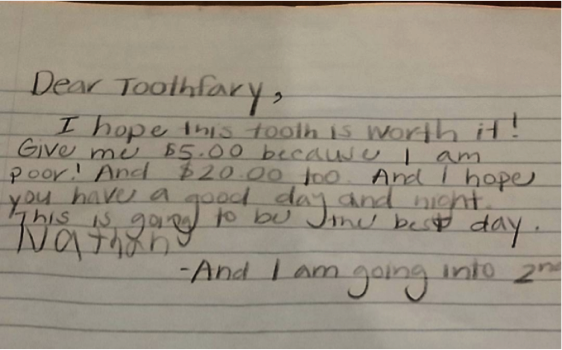 Dear Toothfary,
I hope this tooth is worth it!
Give me $5.00 because I am
poor! And $20.00 too. And I hope
you have a good day and night.
This is going to be the best day.
Nathan
-And I am going into 2nd